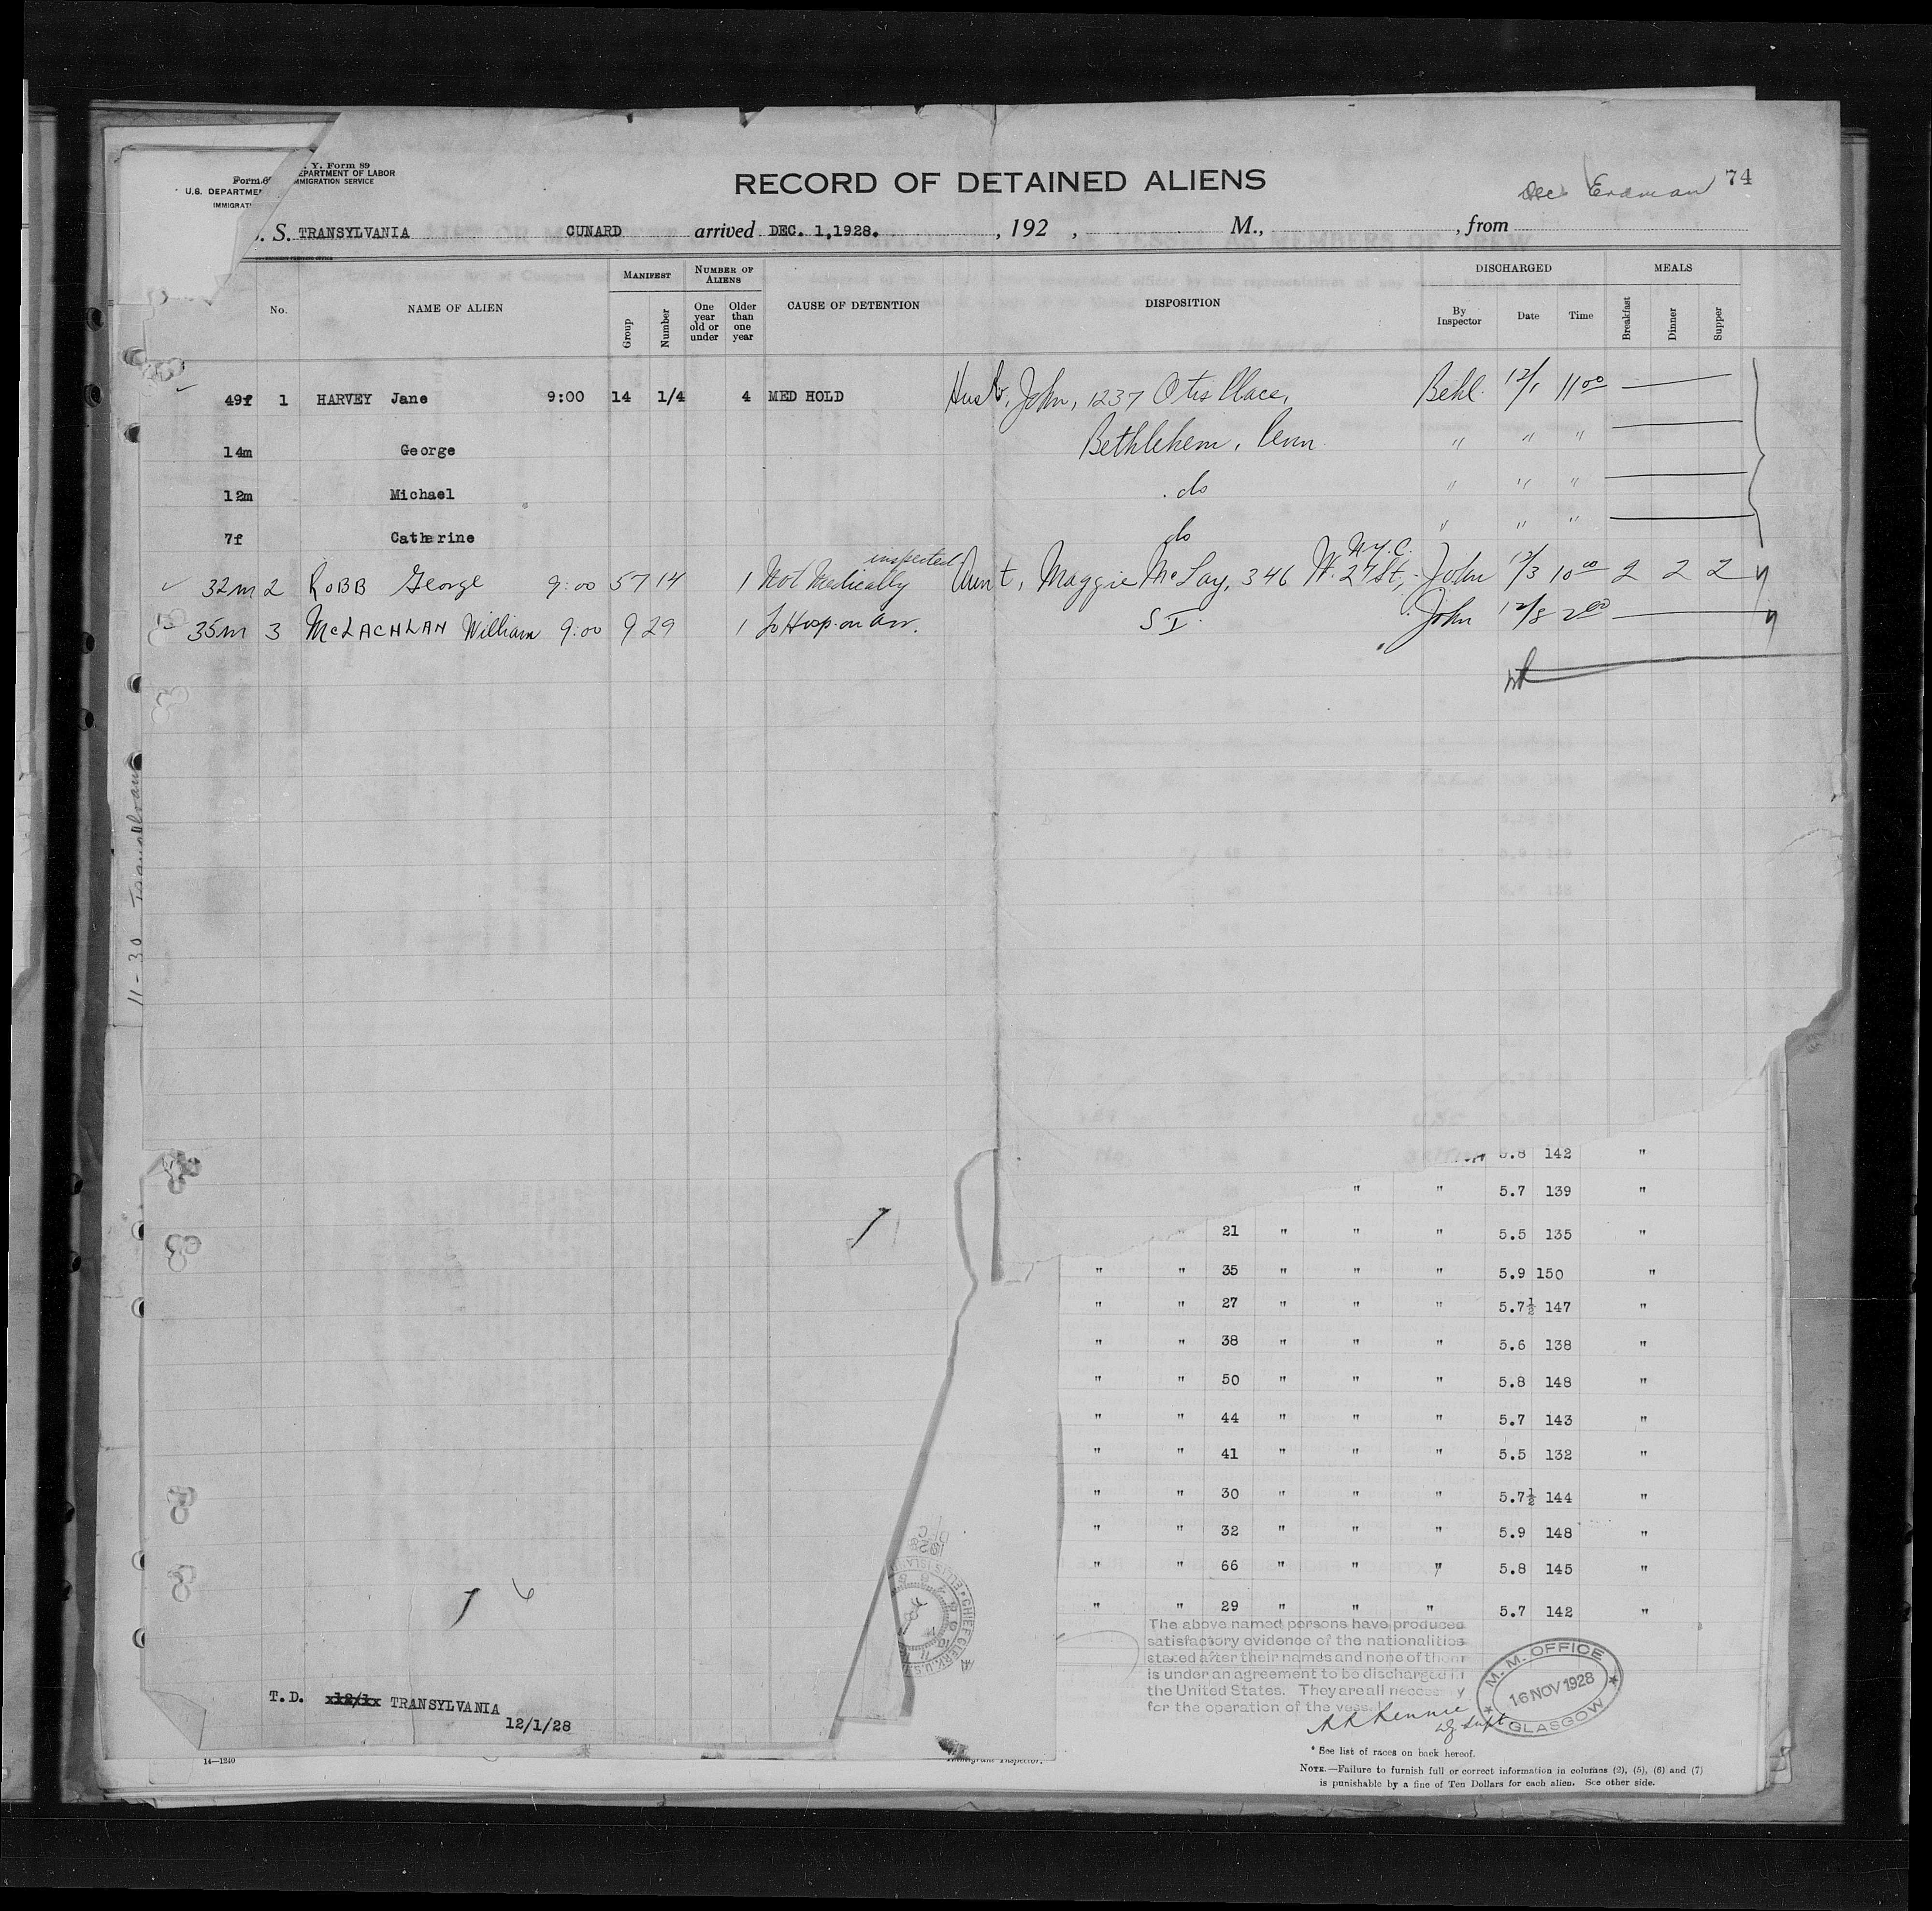 Y. Form 89
Form
EPARTMENT OF LABOR
U.S. DEPARTME
MMIGRATION SERVICE
IMMIGRAT
RECORD OF DETAINED ALIENS
Erdman 74
. S. TRANSYLVANIA CUNARD arrived DEC. 1,1928. , 192 , M., , from
No. NAME OF ALIEN MANIFEST Group Number NUMBER OF ALIENS One year old or under Older than one year CAUSE OF DETENTION DISPOSITION DISCHARGED By Inspector Date Time MEALS Breakfast Dinner Supper
49f 1 HARVEY Jane 9:00 14 1/4 4 MED HOLD Husb, John, 1237 Otis Place, Behl. 12/1 11 00
14m George Bethlehem, Penn " " "
12m Michael do " " "
7f Catherine do " " "
32m 2 ROBB George 9:00 57 14 1 Not Medically inspected Aunt, Maggie McLay, 346 W. 27 St, N.Y.C. John 12/3 10 00 2 2 2
35m 3 McLACHLAN William 9:00 9 29 1 To Hosp. on arr. S I. John 12/8 2 00
11-30 Transylvania
5.8 142 "
" " 5.7 139 "
" 21 " " " 5.5 135 "
" " 35 " " " 5.9 150 "
" " 27 " " " 5.7½ 147 "
" " 38 " " " 5.6 138 "
" " 50 " " " 5.8 148 "
" " 44 " " " 5.7 143 "
" " 41 " " " 5.5 132 "
" " 30 " " " 5.7½ 144 "
" " 32 " " " 5.9 148 "
" " 66 " " " 5.8 145 "
" " 29 " " " 5.7 142 "
The above named persons have produced
satisfactory evidence of the nationalities
stated after their names and none of them
is under an agreement to be discharged in
the United States. They are all necessary
for the operation of the vess
M. M. OFFICE
16 NOV 1928
GLASGOW
CHIEF CLERK, U.S.
ELLIS ISLAN
T.D. x12/1x TRANSYLVANIA
12/1/28
14—1240
Immigrant Inspector.
* See list of races on back hereof.
NOTE.—Failure to furnish full or correct information in columns (2), (5), (6) and (7)
is punishable by a fine of Ten Dollars for each alien. See other side.